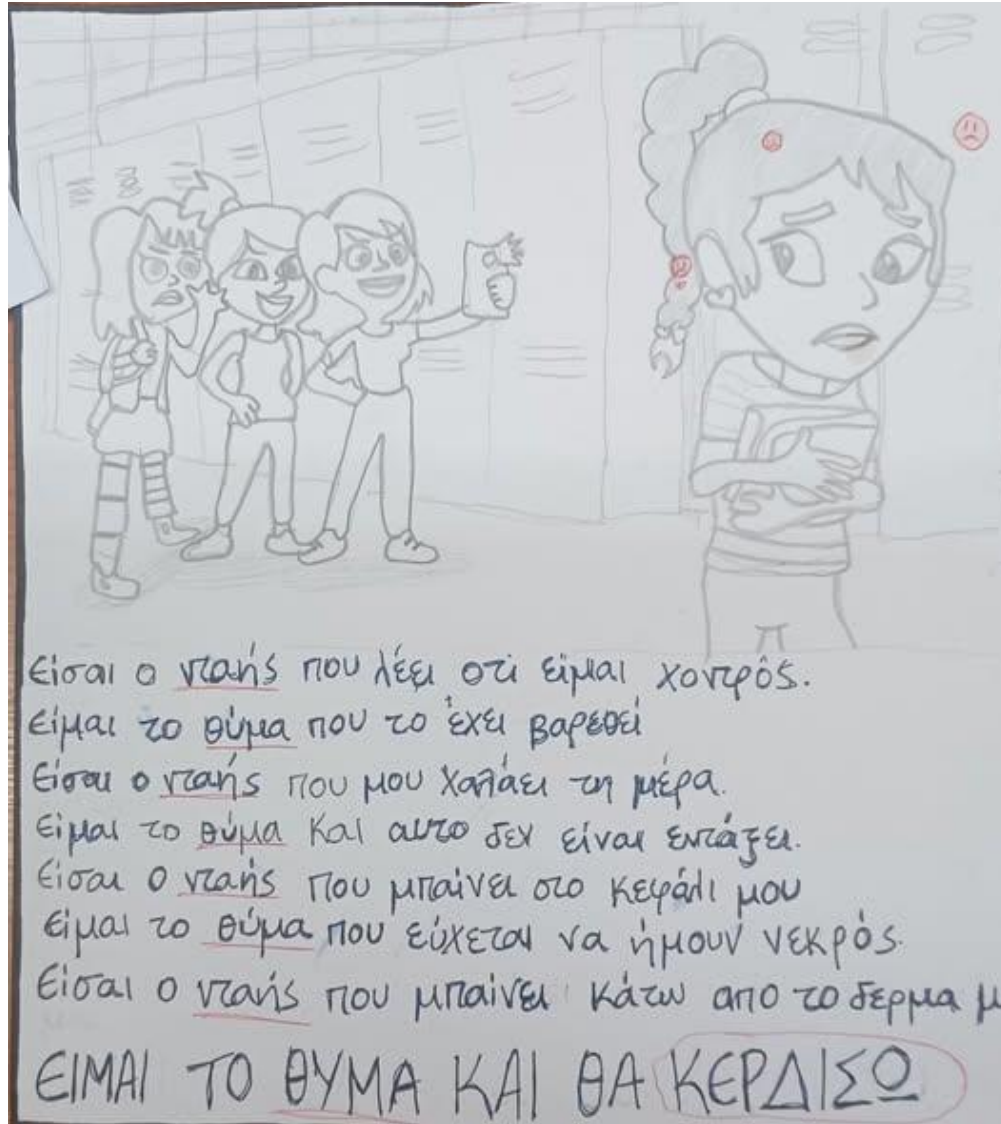 είσαι ο νταής που λέει οτι είμαι χοντρός.
είμαι το θύμα που το έχει βαρεθεί
είσαι ο νταής που μου χαλάει τη μέρα.
είμαι το θύμα και αυτο δεν είναι εντάξει.
είσαι ο νταής που μπαίνει στο κεφάλι μου
είμαι το θύμα που εύχεται να ήμουν νεκρός.
είσαι ο νταής που μπαίνει κάτω απο το δερμα μ
ΕΙΜΑΙ ΤΟ ΘΥΜΑ ΚΑΙ ΘΑ ΚΕΡΔΙΣΩ